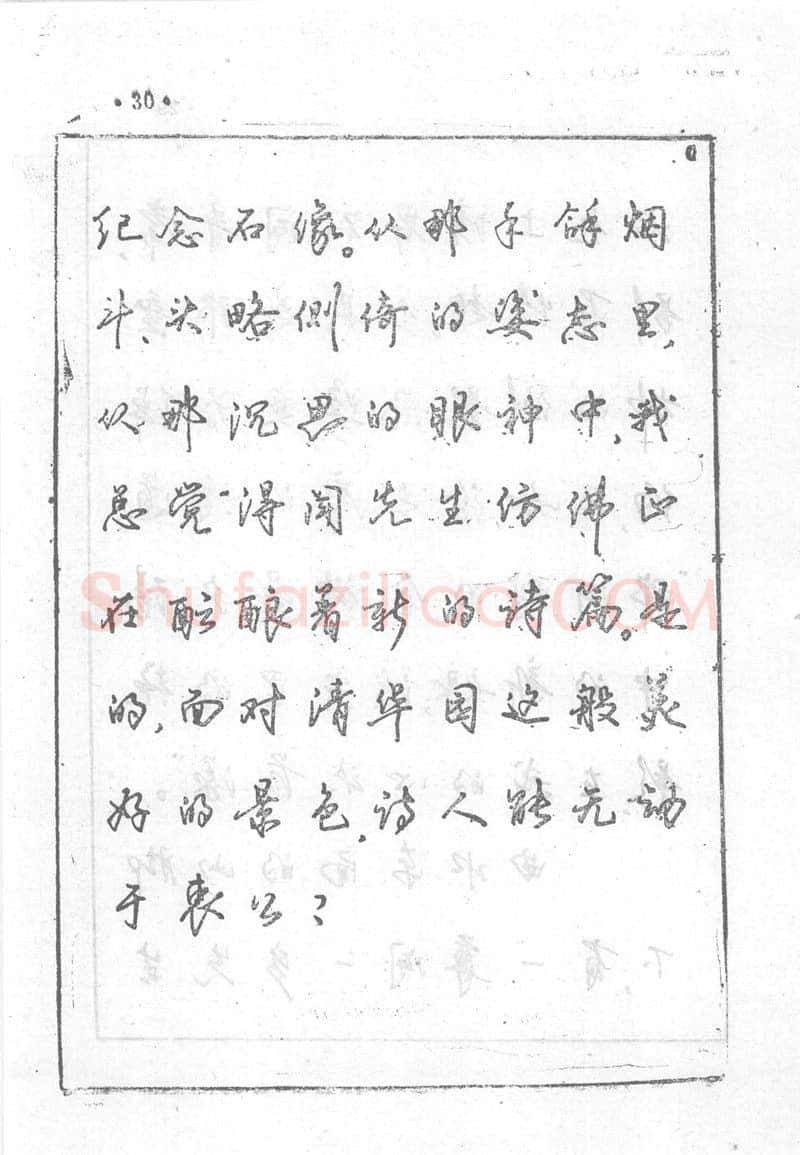 ·30·
纪念石像。从那手馀烟
斗、头略侧倚的姿态里,
从那沉思的眼神中,我
总觉得闻先生仿佛正
在酝酿着新的诗篇。是
的,面对清华园这般美
好的景色,诗人能无动
于衷么?
Shufaziliao.COM